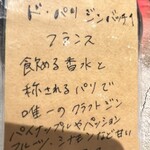 ド・パリ ジンバッチ1
フランス
飲める香水と
称されるパリで
唯一のクラフトジン
パイナップルやパッション
フルーツ、シナモンなど甘い